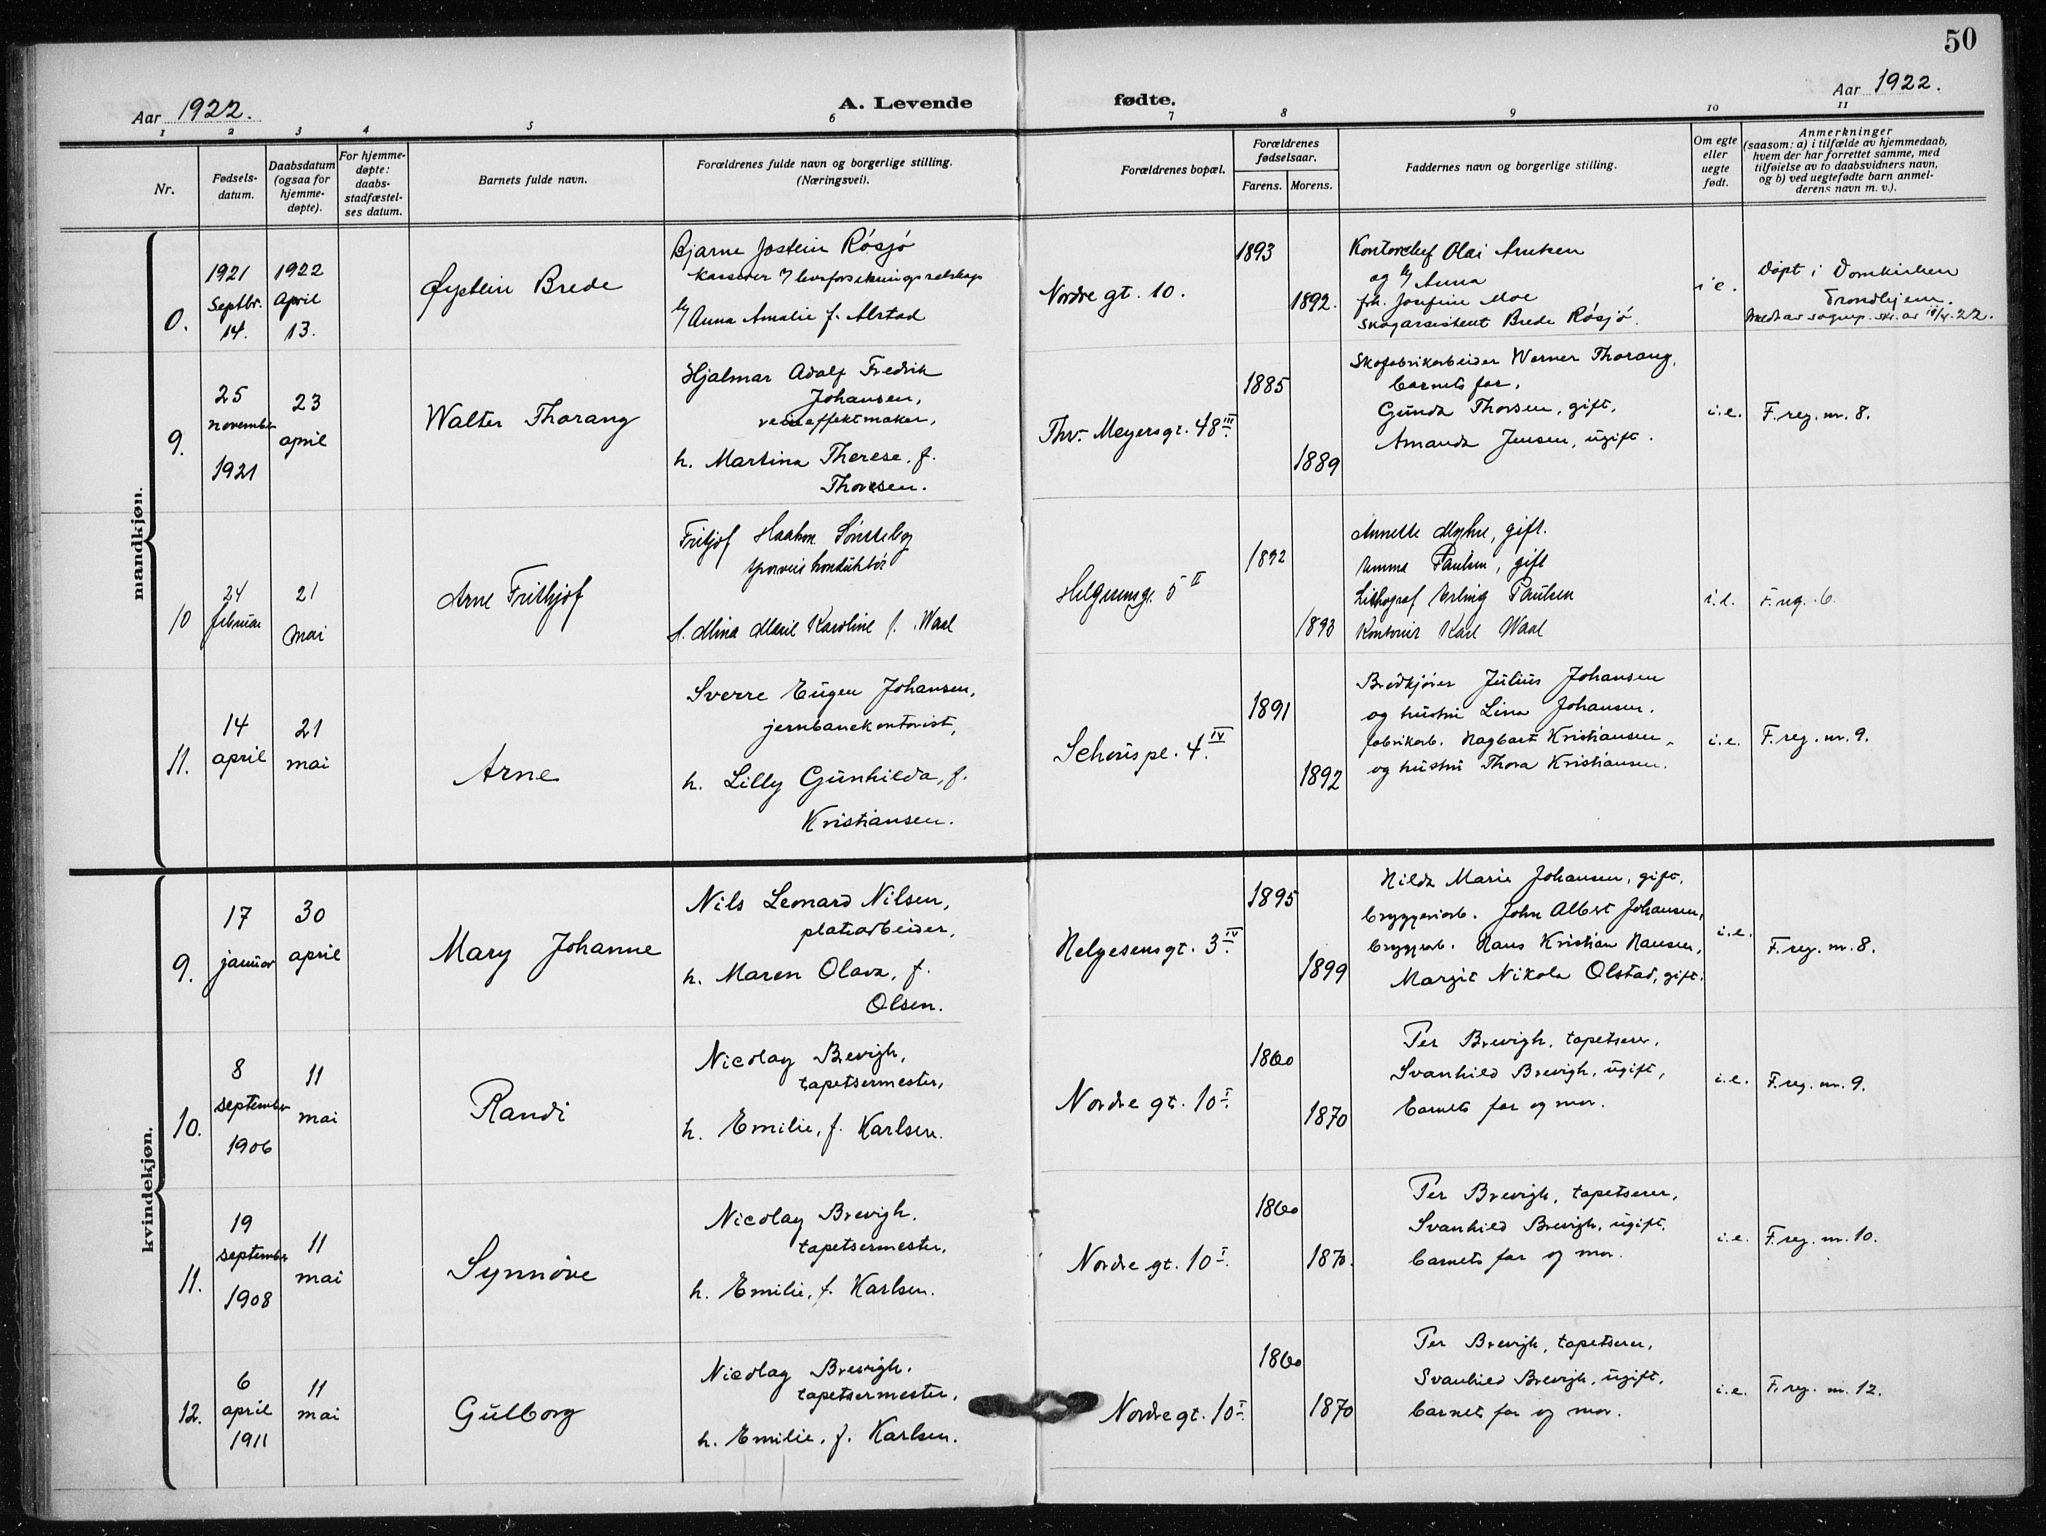 50
Aar 1922.
A. Levende fødte.
Aar 1922.
1 2 3 4 5 6 7 8 9 10 11
Nr.
Fødsels-
datum.
Daabsdatum
(ogsaa for
hjemme-
døpte).
For hjemme-
døpte:
daabs-
stadfæstel-
ses datum.
Barnets fulde navn.
Forældrenes fulde navn og borgerlige stilling.
(Næringsvei).
Forældrenes bopæl.
Forældrenes
fødselsaar.
Farens. Morens.
Faddernes navn og borgerlige stilling.
Om egte
eller
uegte
født.
Anmerkninger
(saasom: a) i tilfælde av hjemmedaab,
hvem der har forrettet samme, med
tilføielse av to daabsvidners navn,
og b) ved uegtefødte barn anmel-
derens navn m. v.).
mandkjøn.
0.
1921
Septbr.
14.
1922
April
13.
Øystein Brede
Bjarne Jostein Røsjø
kasserer v/ livsforsikringsselskap
h/ Anna Amalie f. Alstad
Nordre gt. 10.
1893
1892.
Kontorchef Olai Arntsen
og h/ Anna
frk. Josefine Moe
skogassistent Brede Røsjø.
i e.
Døpt i Domkirken
Trondhjem.
9.
25
november
1921
23
april
Walter Thorang
Hjalmar Adolf Fredrik
Johansen,
h. Martina Therese, f.
Thoresen.
Thv. Meyersgt. 48 III.
1885
1889
Skofabrikarbeider Werner Thorang,
barnets far,
Gunda Thorsen, gift,
Amanda Jensen, ugift.
i.e.
F. reg. nr. 8.
10
24
februar
21
mai
Arne Frithjof
Fritjof Haakon Sønsteby
sporveiskonduktør
h. Alina Marie Karoline f. Waal
Helgesensgt. 5 II
1892
1893
Annette Myhre, gift.
Amma Paulsen, gift
Lithograf Erling Paulsen
Kontorist Karl Waal
i.e.
F. reg. 6.
11.
14
april
21
mai
Arne
Sverre Eugen Johansen,
jernbanekontorist,
h. Lilly Gunhilda, f.
Kristiansen.
Schouspl. 4 IV.
1891
1892
Brødkjører Julius Johansen
og hustru Lina Johansen.
fabrikarb. Hagbart Kristiansen
og hustru Thora Kristiansen.
i.e.
F. reg. nr. 9.
kvindekjøn.
9.
17
januar
30
april
Mary Johanne
Nils Leonard Nilsen,
platearbeider,
h. Maren Olava, f.
Olsen.
Helgesensgt. 3 IV.
1895
1899
Hilda Marie Johansen, gift,
bryggeriarb. John Albert Johansen,
bryggerb. Hans Kristian Hansen,
Margit Nikola Olstad, gift.
i.e.
F. reg. nr. 8.
10.
8
september
1906
11
mai
Randi
Nicolay Brevigh,
tapetsermester,
h. Emilie, f. Karlsen.
Nordre gt. 10 I.
1860
1870
Per Brevigh, tapetserer,
Svanhild Brevigh, ugift,
barnets far og mor.
i.e.
F. reg. nr. 9.
11.
19
september
1908
11
mai
Synnøve
Nicolay Brevigh.
tapetsermester,
h. Emilie, f. Karlsen.
Nordre gt. 10 I.
1860
1870.
Per Brevigh, tapetserer,
Svanhild Brevigh, ugift,
barnets far og mor.
i.e.
F. reg. nr. 10.
12.
6
april
1911
11
mai
Gulborg
Nicolay Brevigh,
tapetsermester,
h. Emilie, f. Karlsen.
Nordre gt. 10 I.
1860
1870
Per Brevigh, tapetserer,
Svanhild Brevigh, ugift,
barnets far og mor.
i.e.
F. reg. nr. 12.